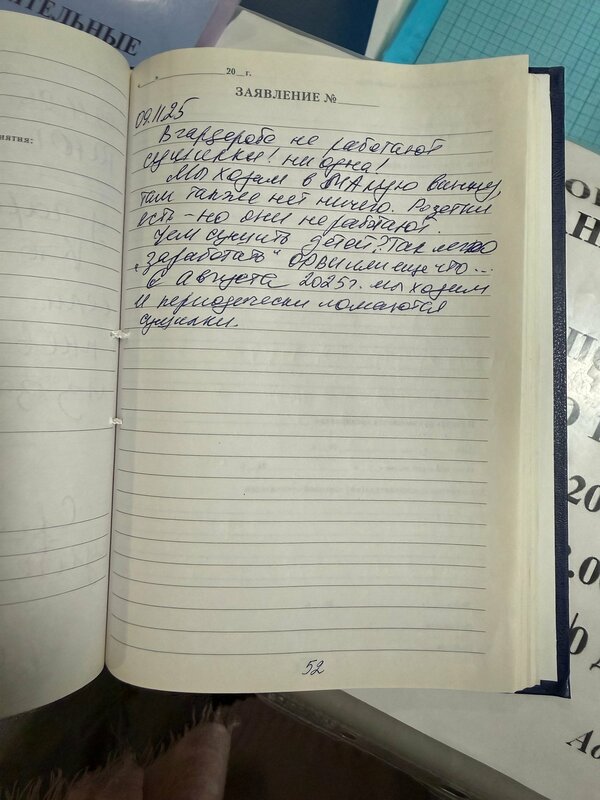 ТЕЛЬНЫЕ
иятия:
"__"__________ 20__г.
ЗАЯВЛЕНИЕ №
09.11.25
В гардеробе не работают
сушилки! ни одна!
Мы ходим в МАлую ванну,
там также нет ничего. Розетки
есть - но они не работают.
Чем сушить детей? Так легко
"заработать" ОРВИ или еще что...
С Августа 2025г. мы ходим
и периодически ломаются
сушилки.
52